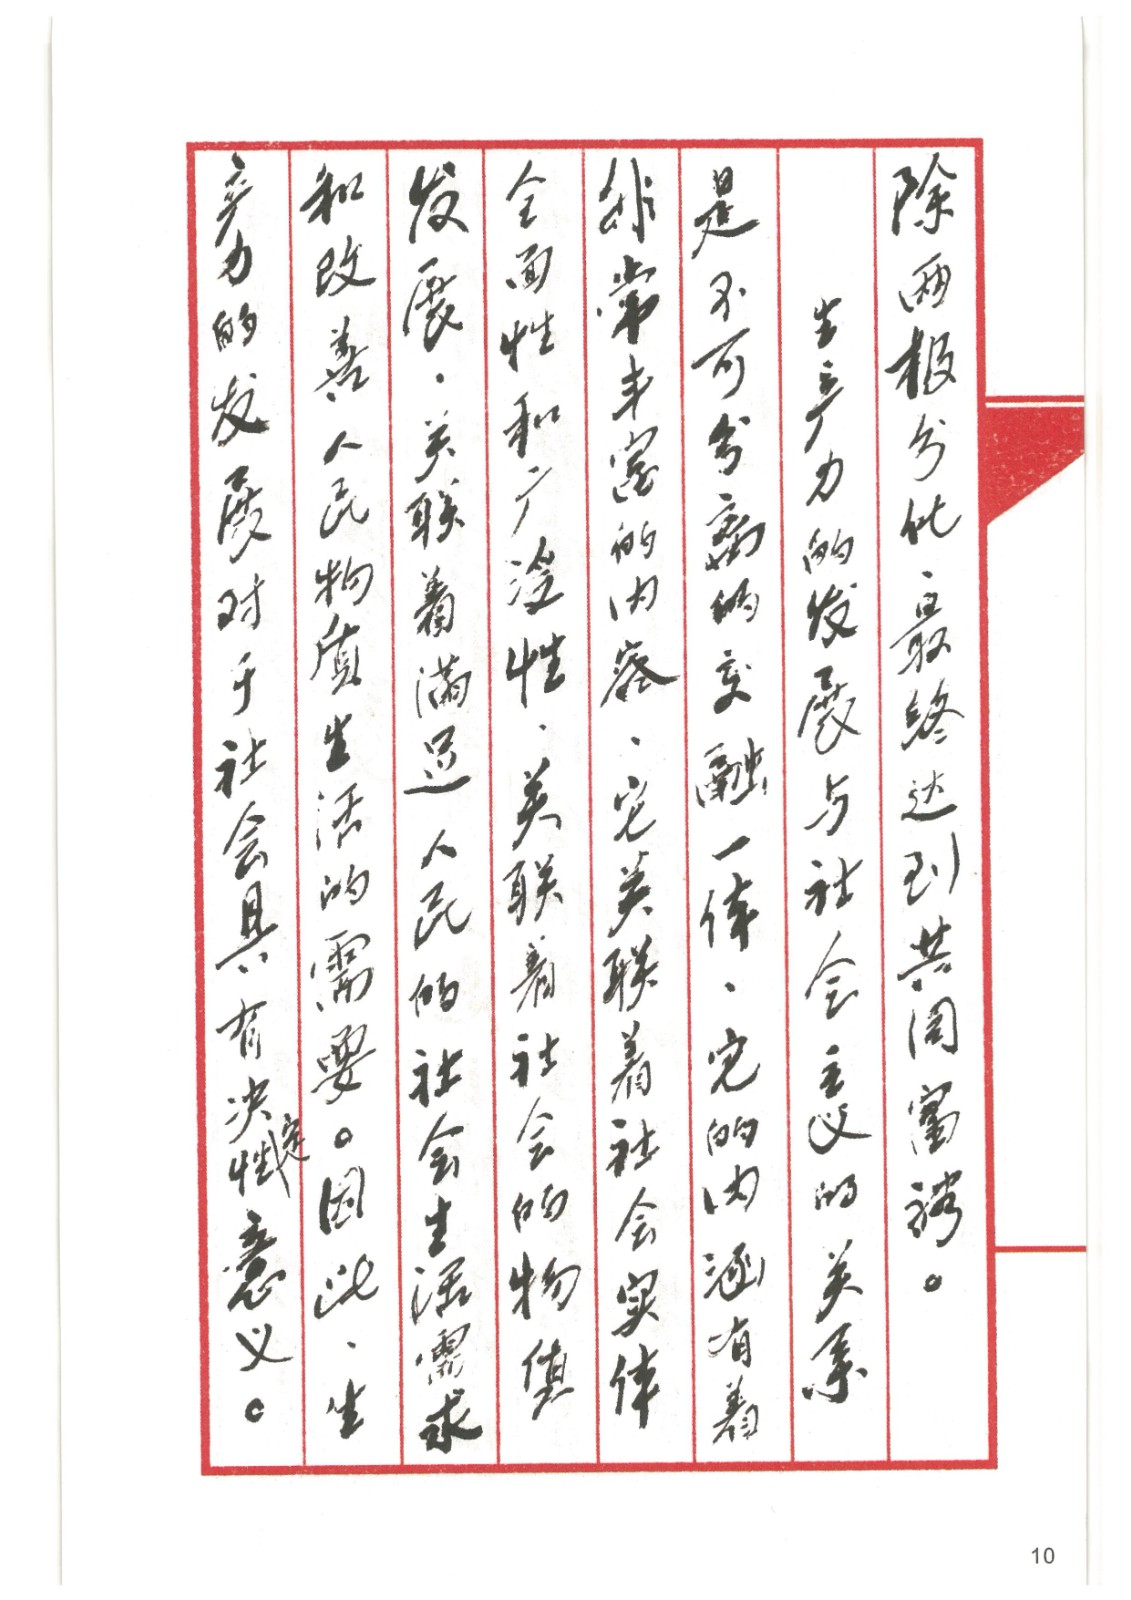 除两极分化、最终达到共同富裕。
生产力的发展与社会主义的关系
是不可分离的交融一体、它的内涵有着
非常丰富的内容、它关联着社会实体
全面性和广泛性、关联着社会的物质
发展、关联着满足人民的社会生活需求
和改善人民物质生活的需要。因此、生
产力的发展对于社会具有决定性意义。
10